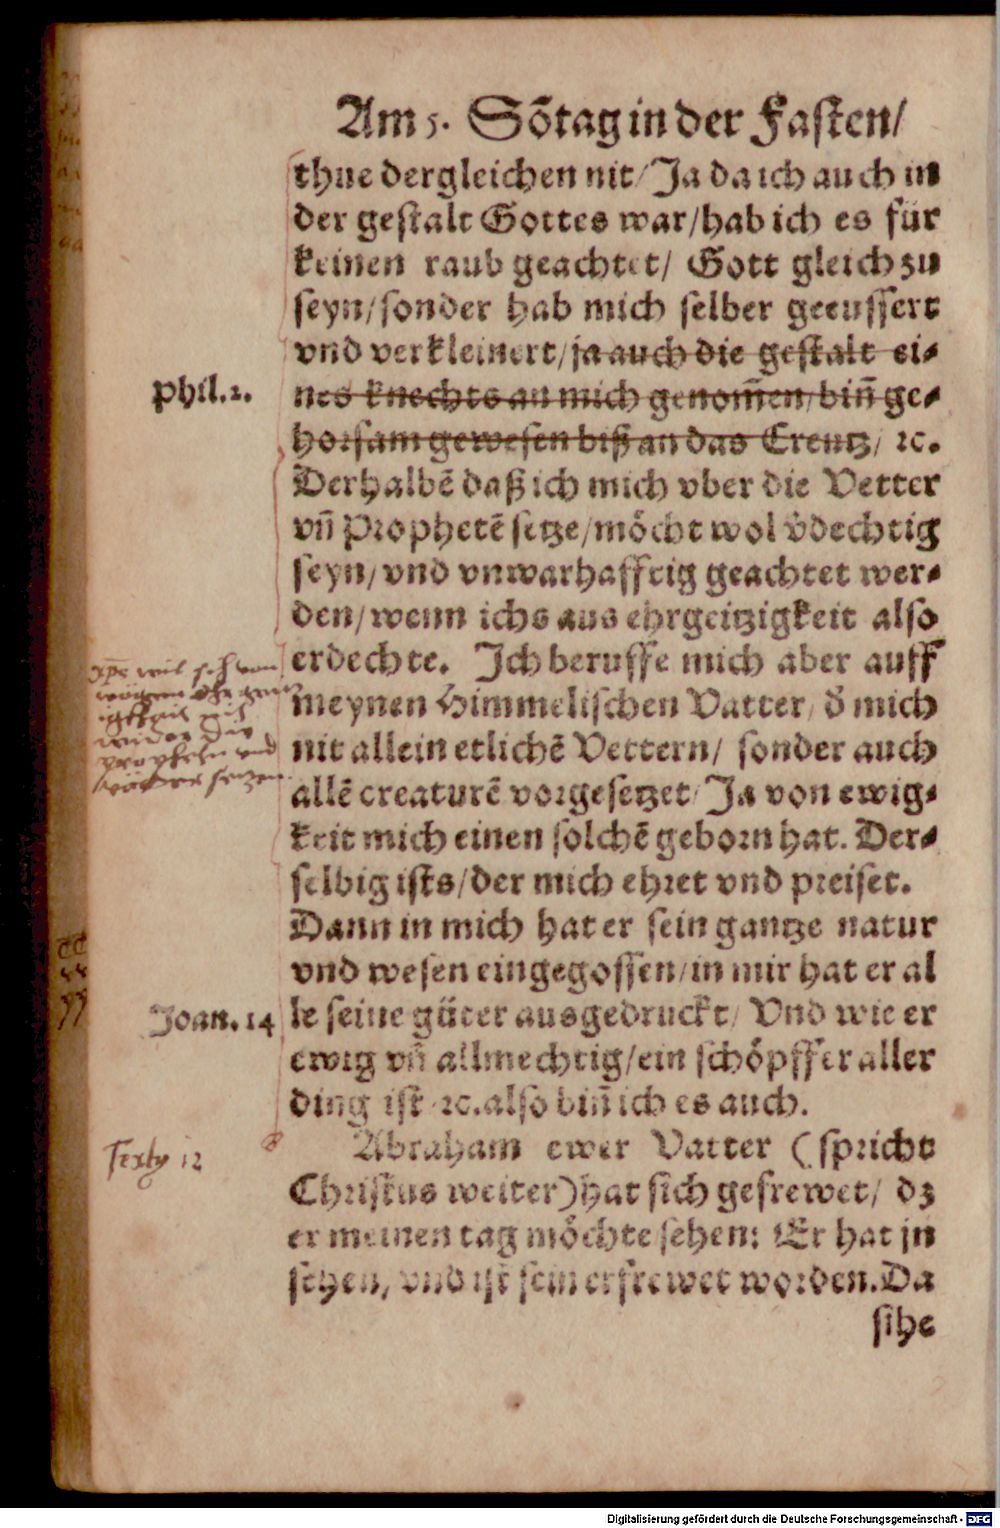 Am 5. Sõtag in der Fasten/
thue dergleichen nit/ Ja da ich auch in
der gestalt Gottes war/hab ich es für
keinen raub geachtet/ Gott gleich zu
seyn/sonder hab mich selber geeussert
vnd verkleinert/ja auch die gestalt ei-
Phil.2.
nes knechts an mich genom̃en/biñ ge-
horsam gewesen biß an das Creutz/ ꝛc.
Derhalbẽ daß ich mich vber die Vetter
vñ Prophetẽ setze/möcht wol v̈dechtig
seyn/vnd vnwarhafftig geachtet wer-
den/wenn ichs aus ehrgeitzigkeit also
erdechte. Ich beruffe mich aber auff
xp̄s wil sich von
wegen
mit
wider die
propheten vnd
vätter setzen
meynen Himmelischen Vatter/ d̃ mich
nit allein etlichẽ Vettern/ sonder auch
allẽ creaturẽ vorgesetzet/Ja von ewig-
keit mich einen solchẽ geborn hat. Der-
selbig ists/der mich ehret vnd preiset.
Dann in mich hat er sein gantze natur
vnd wesen eingegossen/in mir hat er al
Joan.14
le seine güter ausgedruckt/ Vnd wie er
ewig vñ allmechtig/ein schöpffer aller
ding ist ꝛc.also biñ ich es auch.
Abraham ewer Vatter (spricht
12
Christus weiter)hat sich gefrewet/ dz
er meinen tag möchte sehen: Er hat jn
sehen/ vnd ist sein erfrewet worden.Da
sihe
Digitalisierung gefördert durch die Deutsche Forschungsgemeinschaft - DFG